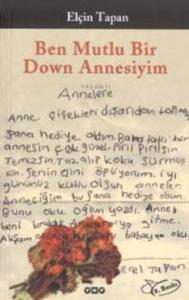 Elçin Tapan
Ben Mutlu Bir
Down Annesiyim
YAŞANTI
Annelere
Anne, Çiçekleri dışarıdan
Sana hediye aldım. Bana iyi bir
annesin çok güzel. Piril piril sin
Temizsin. Toz alıp koku sürmüş
sün. Senin elini öpüyorum. iyi
gününüz kutlu olsun anneler.
Anneciğim bu sana hediye olsun.
Bunu oku. Oğlun yazdı. Anne
beni bırak Ankara'ya gitme.
Akşam babaya oku.
Erel Tapan
YKY